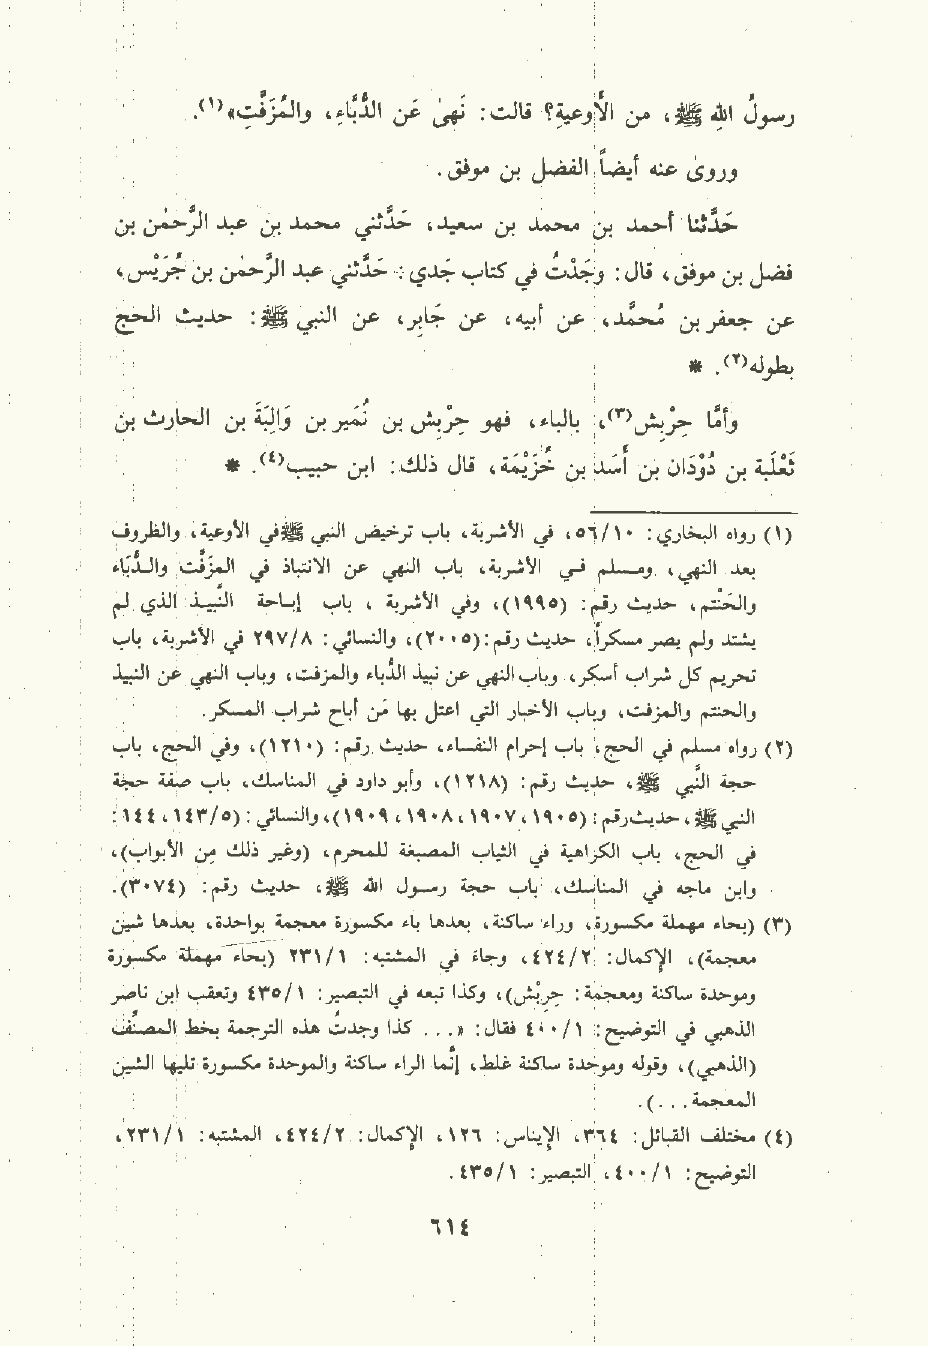 رسولُ اللهِ ﷺ، من الأَوعيةِ؟ قالت: نَهىٰ عَن الدُّبَّاءِ، والمُزَفَّتِ»(١).
وروىٰ عنه أيضاً الفضل بن موفق.
حَدَّثنا أحمد بن محمد بن سعيد، حَدَّثني محمد بن عبد الرَّحمٰن بن
فضل بن موفق، قال: وَجَدْتُ في كتاب جَدي: حَدَّثني عبد الرَّحمٰن بن جُرَيْس،
عن جعفر بن مُحمَّد، عن أبيه، عن جَابِر، عن النبي ﷺ: حديث الحج
بطوله(٢). *
وأمَّا حِرْبِش(٣)، بالباء، فهو حِرْبِش بن نُمَير بن وَالِبَةَ بن الحارث بن
ثَعْلَبة بن دُوْدَان بن أَسَد بن خُزَيْمَة، قال ذلك: ابن حبيب(٤). *
(١) رواه البخاري: ٥٦/١٠، في الأشربة، باب ترخيص النبي ﷺ في الأوعية، والظروف
بعد النهي، ومسلم في الأشربة، باب النهي عن الانتباذ في المزفَّت والدُّباء
والحَنْتم، حديث رقم: (١٩٩٥)، وفي الأشربة، باب إباحة النَّبيذ الذي لم
يشتد ولم يصر مسكراً، حديث رقم: (٢٠٠٥)، والنسائي: ٢٩٧/٨ في الأشربة، باب
تحريم كل شراب أسكر، وباب النهي عن نبيذ الدُّباء والمزفت، وباب النهي عن النبيذ
والحنتم والمزفت، وباب الأخبار التي اعتل بها مَن أباح شراب المسكر.
(٢) رواه مسلم في الحج، باب إحرام النفساء، حديث رقم: (١٢١٠)، وفي الحج، باب
حجة النَّبي ﷺ، حديث رقم: (١٢١٨)، وأبو داود في المناسك، باب صفة حجة
النبي ﷺ، حديث رقم: (١٩٠٥، ١٩٠٧، ١٩٠٨، ١٩٠٩)، والنسائي: (١٤٣/٥، ١٤٤:
في الحج، باب الكراهية في الثياب المصبغة للمحرم، (وغير ذلك مِن الأبواب)،
وابن ماجه في المناسك، باب حجة رسول الله ﷺ، حديث رقم: (٣٠٧٤).
(٣) (بحاء مهملة مكسورة، وراء ساكنة، بعدها باء مكسورة معجمة بواحدة، بعدها شين
معجمة)، الإكمال: ٤٢٤/٢، وجاء في المشتبه: ٢٣١/١ (بحاء مهملة مكسورة
وموحدة ساكنة ومعجمة: حِرِبْش)، وكذا تبعه في التبصير: ٤٣٥/١ وتعقب ابن ناصر
الذهبي في التوضيح: ٤٠٠/١ فقال: «... كذا وجدتُ هذه الترجمة بخط المصنِّف
(الذهبي)، وقوله وموحدة ساكنة غلط، إنَّما الراء ساكنة والموحدة مكسورة تليها الشين
المعجمة...).
(٤) مختلف القبائل: ٣٦٤، الإيناس: ١٢٦، الإكمال: ٤٢٤/٢، المشتبه: ٢٣١/١،
التوضيح: ٤٠٠/١، التبصير: ٤٣٥/١.
٦١٤